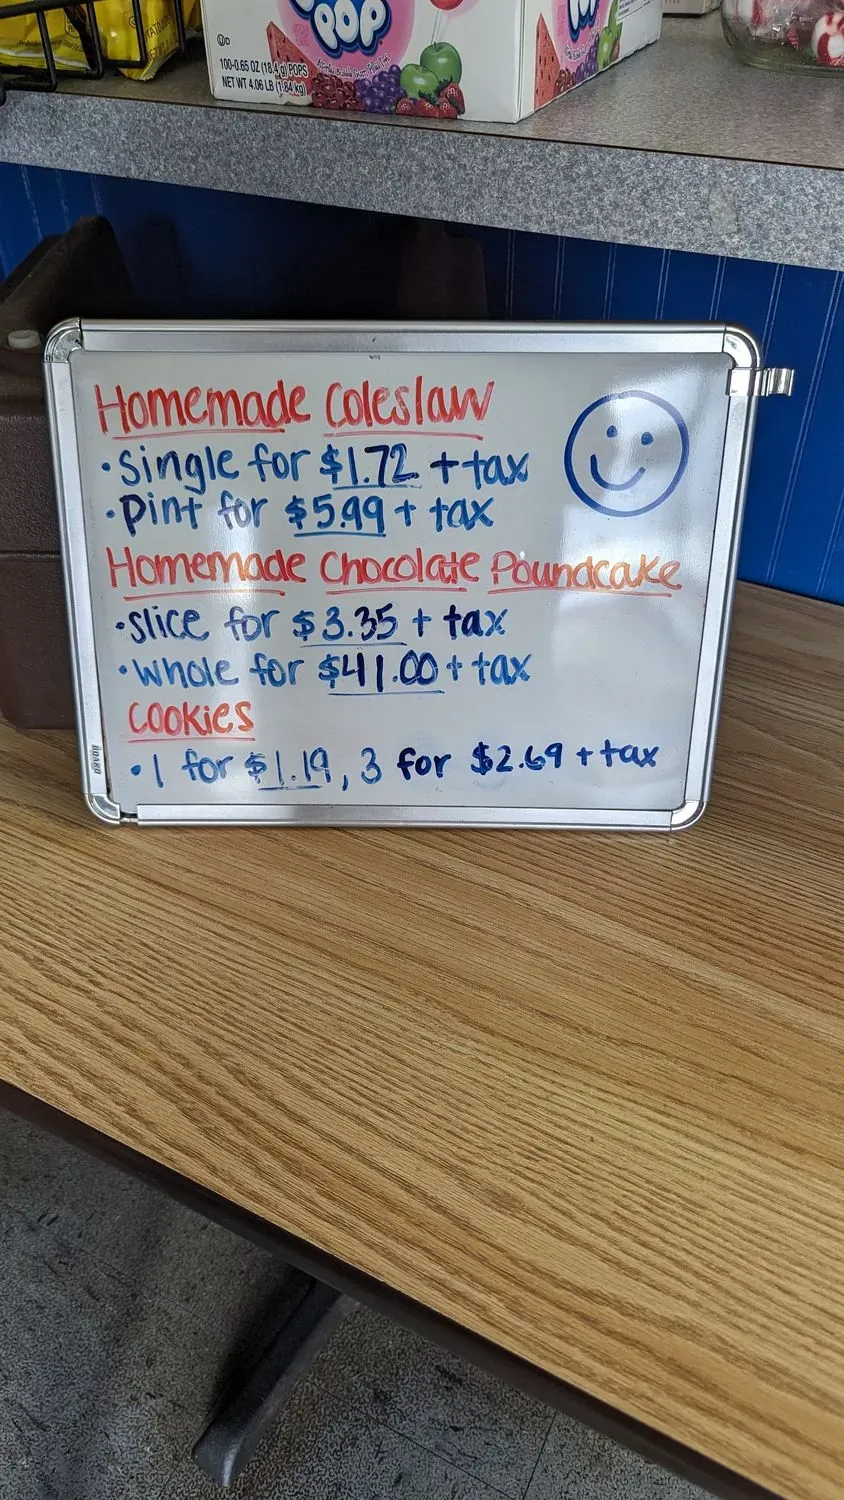 POP
100-0.65 OZ (18.4 g) POPS
NET WT 4.06 LB (1.84 kg)
Homemade Coleslaw
• Single for $1.72 + tax
• pint for $5.99 + tax
Homemade Chocolate Poundcake
• slice for $3.35 + tax
• whole for $41.00 + tax
Cookies
• 1 for $1.19, 3 for $2.69 + tax